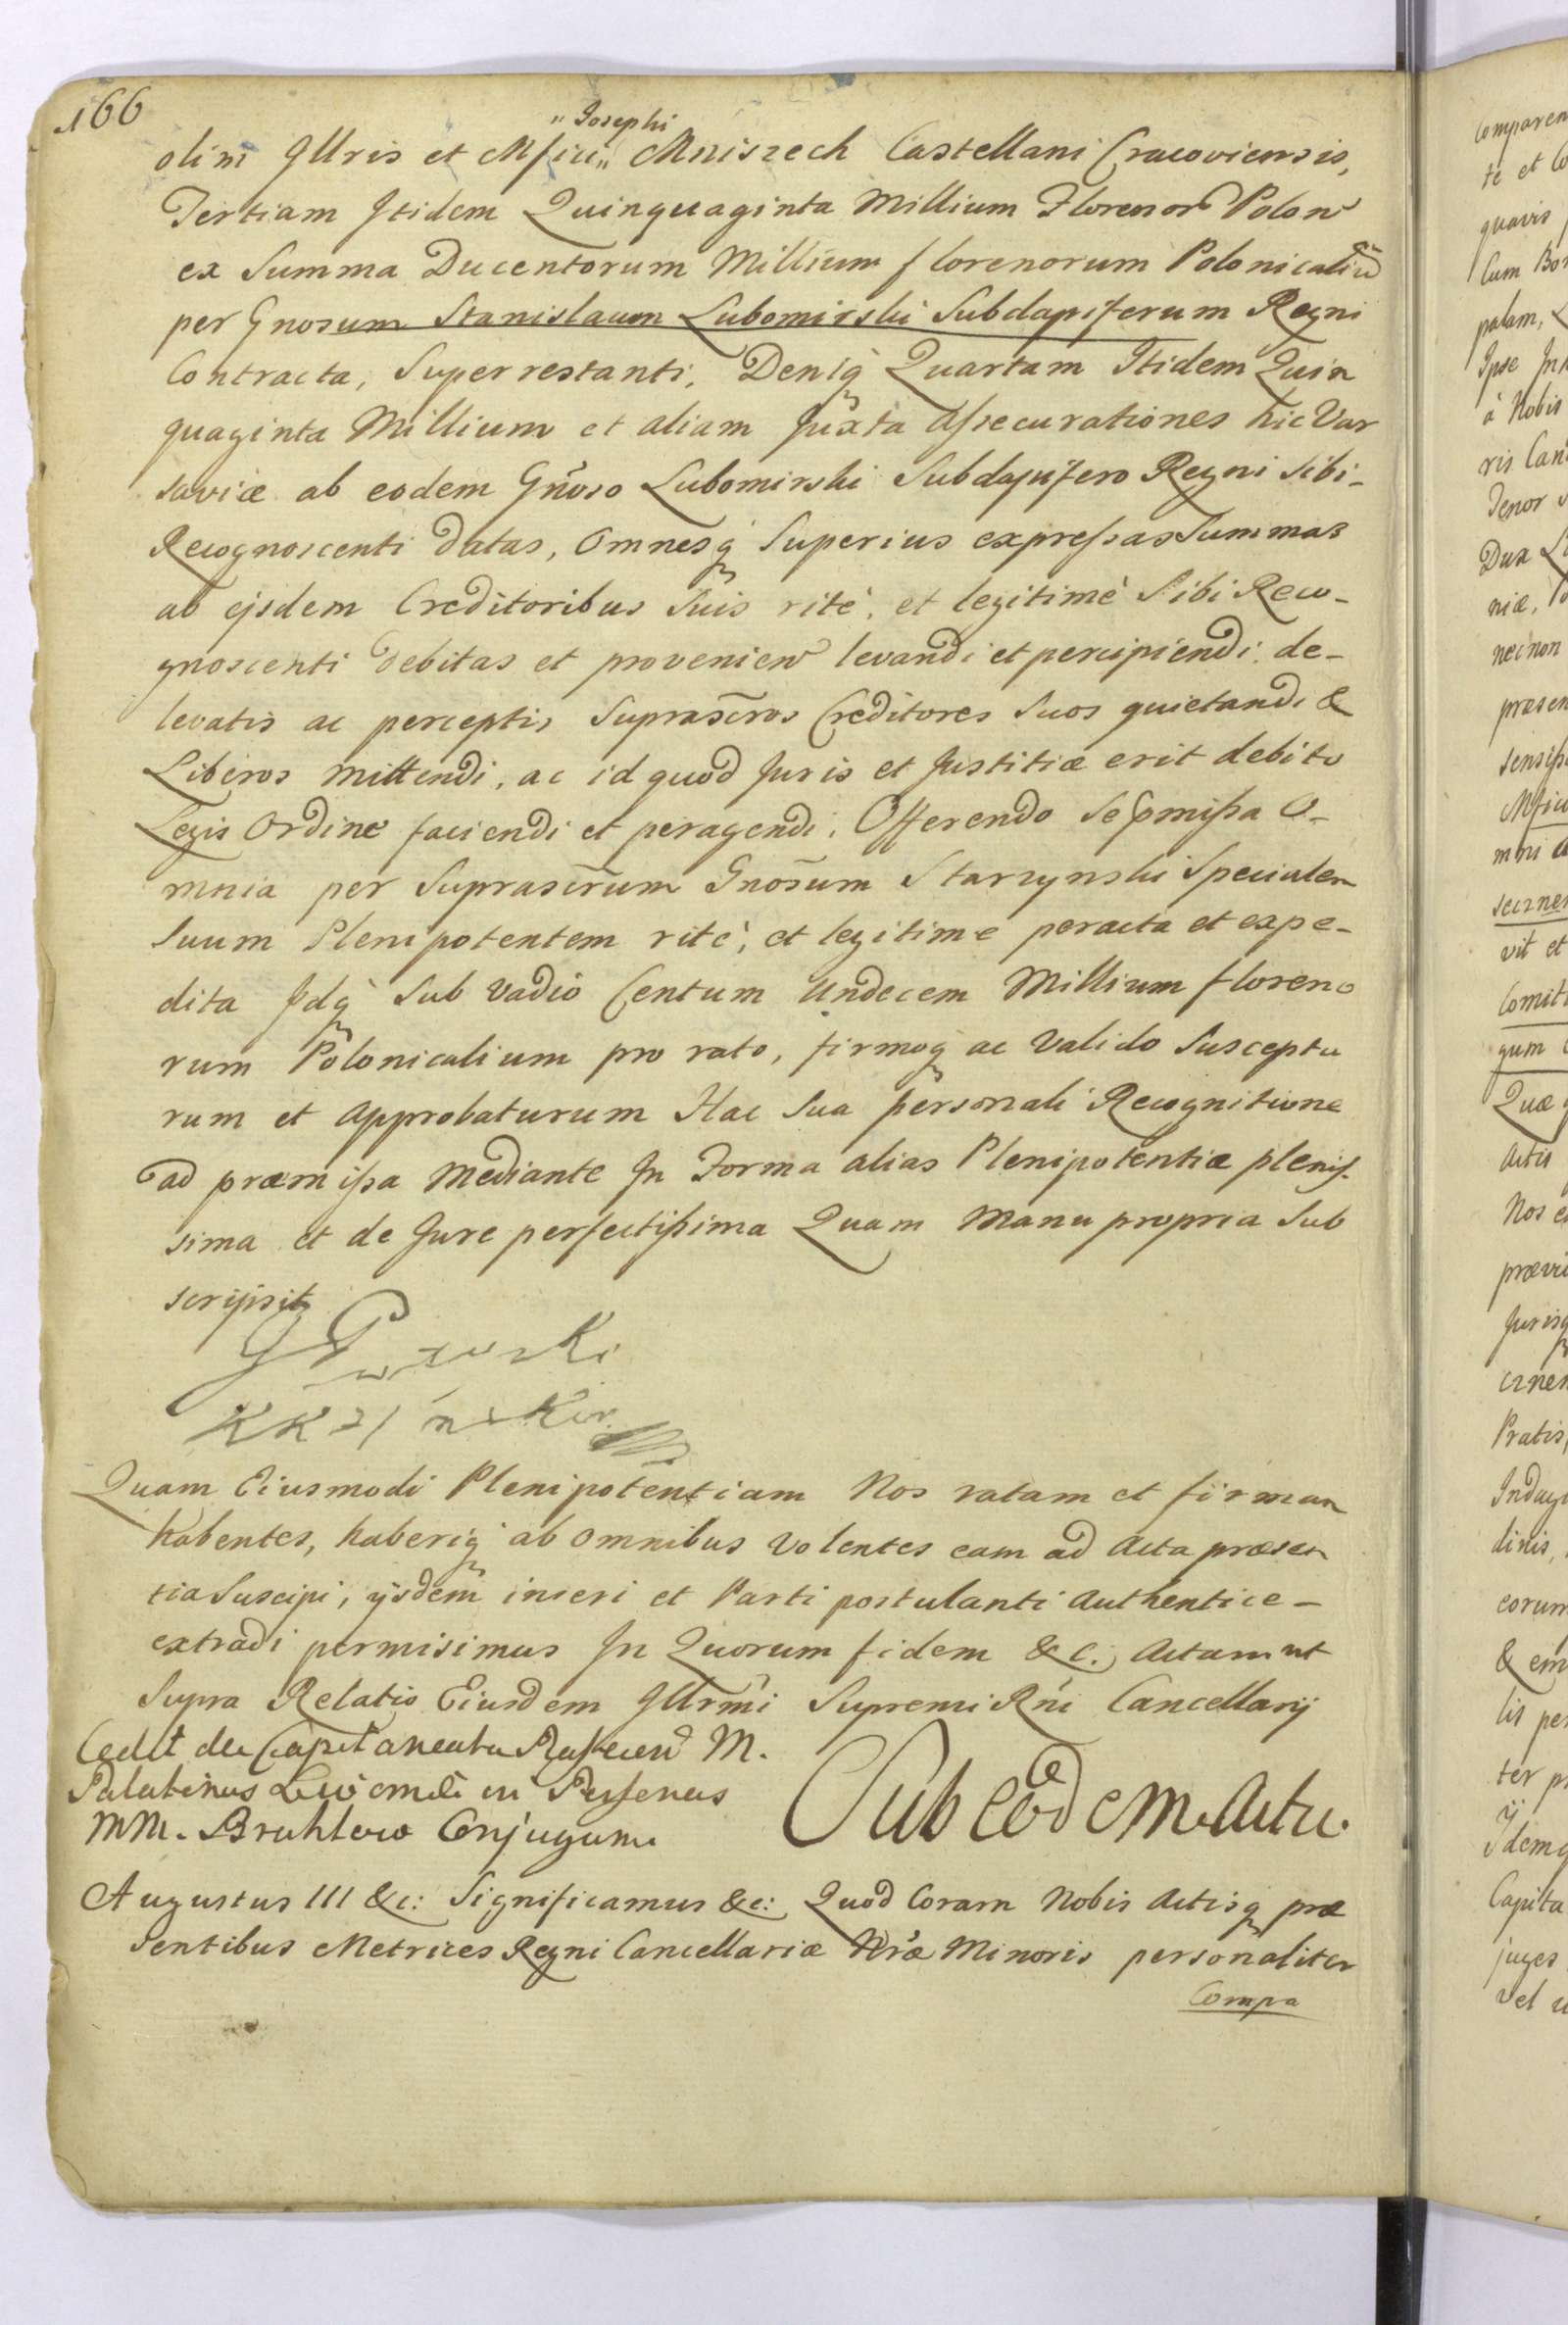 166
"Josephi
olim Jllris et Mfici" Mniszech Castellani Cracoviensis,
Tertiam Jtidem Quinquaginta Millium Florenor Polon
ex Summa Ducentorum Millium florenorum Polonicaliū
per Gnosum Stanislaum Lubomirski Subdapiferum Regni
Contracta, Superrestanti, Deniq Quartam Jtidem Quin
quaginta Millium et aliam Juxta Assecurationes hic Var
saviæ ab eodem Gñoso Lubomirski Subdapifero Regni sibi-
Recognoscenti Datas, Omnesq Superius expressas Summas
ab ejsdem Creditoribus Suis ritè, et legitimè Sibi Reco-
gnoscenti Debitas et provenien levandi et percipiendi, de-
levatis ac perceptis Suprascr̄os Creditores Suos quietandi &
Liberos mittendi, ac id quod Juris et Justitiæ erit debito
Legis Ordine faciendi et peragendi, Offerendo Se p̄missa O-
mnia per Suprascr̄um Gnōsum Starzynski Specialem
Suum Plenipotentem ritè, et legitime peracta et expe-
dita Jdq Sub Vadio Centum Undecem Millium floreno
rum Polonicalium pro rato, firmoq ac Valido Susceptu
rum et Approbaturum Hac Sua personali Recognitione
ad præmissa Mediante Jn Forma alias Plenipotentiæ plenis-
sima et de Jure perfectissima Quam Manu propria Sub
scripsit
Quam Eiusmodi Plenipotentiam Nos ratam et firmam
habentes, haberiq ab omnibus Volentes eam ad Acta præsen
tia Suscipi, ijsdem inseri et Parti postulanti Authentice-
extradi permisimus Jn Quorum fidem &c. Actum ut
Supra Relatio Eiusdem Jllrmi Supremi Rni Cancellarij
Palatinus in Personas
MM. Bruhlow Conjugum
Sub eodem Actu.
Augustus III &c: Significamus &c: Quod Coram Nobis Actisq præ
sentibus Metrices Regni Cancellariæ Nræ Minoris personaliter
Compa